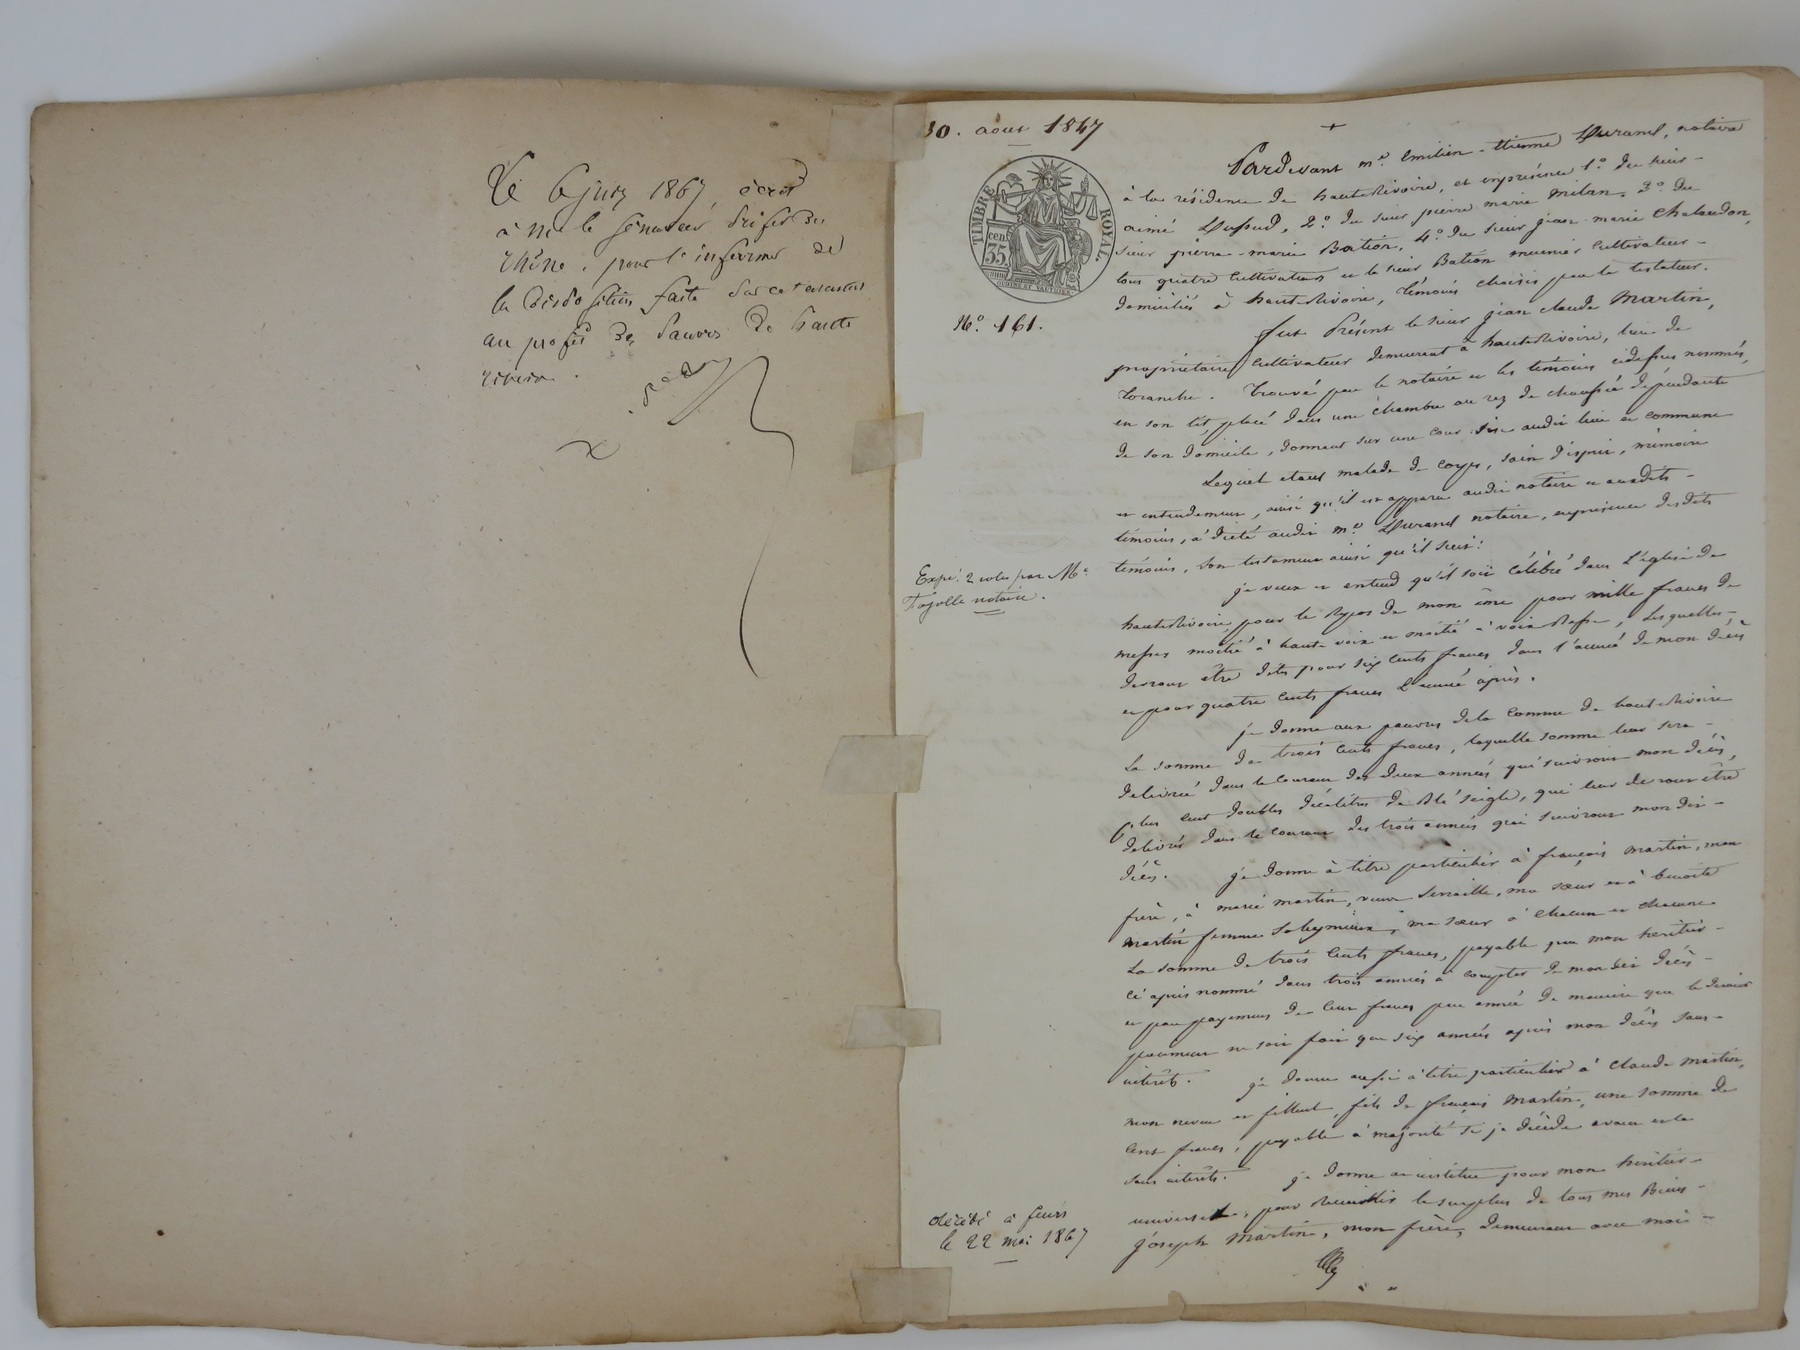 Le 6 juin 1867, écrit
à Mr le sénateur Préfet du
Rhône, pour l'informer de
la disposition faite par ce testament
au profit des pauvres de haute
rivoire.
30. aout 1847
TIMBRE ROYAL.
35 cen.
N.o 161.
Expé. 2 roles par Me
notaire.
décédé à feurs
le 22 mai 1867
Pardevant me. Emilien-Etienne Durand, notaire
à la résidence de hauterivoire, et en présence 1o. du sieur
aimé Dupud, 2o. du sieur pierre marie Milan, 3o. du
sieur pierre-marie Bation, 4o. du sieur jean marie Chalandon,
tous quatre cultivateurs et le sieur Bation meunier cultivateur
domiciliés à hauterivoire, témoins choisis par le testateur.
fut Présent le sieur jean claude Martin,
propriétaire cultivateur demeurant à hauterivoire, lieu de
toranche. trouvé par le notaire et les témoins cidessus nommés,
en son lit, placé dans une chambre au rez de chaussé dépendante
de son domicile, donnant sur une cour sise audit lieu et commune
Lequel etant malade de corps, sain d'esprit, mémoire
et entendement, ainsi qu'il est apparu audit notaire et auxdits
témoins, a dicté audit me. Durand notaire, en présence desdits
témoins, son testament ainsi qu'il suit:
je veux et entend qu'il soit célébré dans l'église de
hauterivoire, pour le repos de mon âme pour mille francs de
messes moitié à haute voix et moitié à voix basse, lesquelles
devront être dites pour six cents francs dans l'année de mon décès
et pour quatre cents francs l'année après.
je donne aux pauvres de la comme de hauterivoire
la somme de trois cents francs, laquelle somme leur sera
délivrée dans le courant des deux années qui suivront mon décès,
Plus cent doubles décalitres de blé seigle, qui leur devront être
délivrés dans le courant des trois années qui suivront mon dit
décès. je donne à titre particulier à françois martin, mon
frère, à marie martin, veuve, ma sœur et à benoite
martin femme, ma sœur à chacun et chacune
la somme de trois cents francs, payable par mon heritier
ci après nommé dans trois années à compter de mon dit décès
et par payement de cent francs par année de manière que le dernier
paiement ne soit fait que six années après mon décès sans
intérêts. je donne aussi à titre particulier à claude martin,
mon neveu et filleul, fils de françois martin, une somme de
cent francs, payable à majorité si je décède avant et le
sans intérêts. je donne et institue pour mon héritier
universel, pour recueillir le surplus de tous mes biens
joseph martin, mon frère, demeurant avec moi